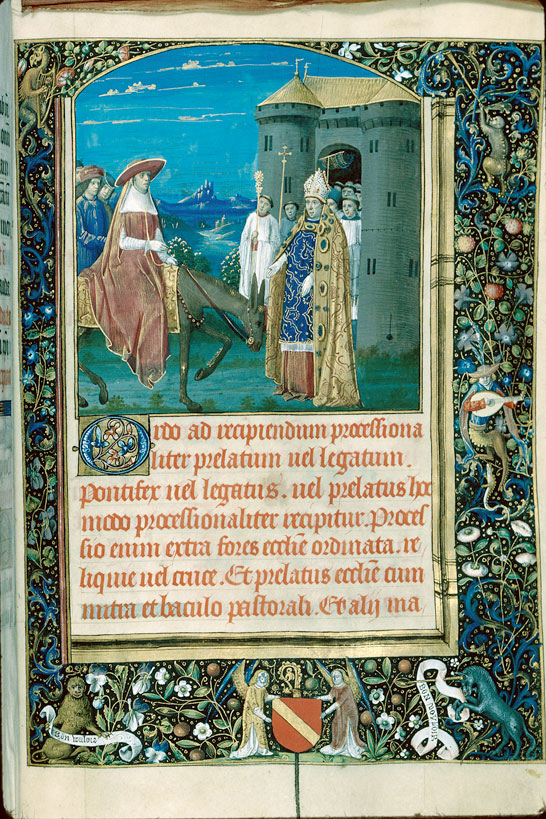 Ordo ad recipiendum processiona
liter prelatum uel legatum.
Pontifex uel legatus. uel prelatus hoc
modo processionaliter recipitur. Proces
sio enim extra fores ecclīe ordinata. re
liquie uel cruce. Et prelatus ecclīe cum
mitra et baculo pastorali. Et alij ma
Bon uouloir